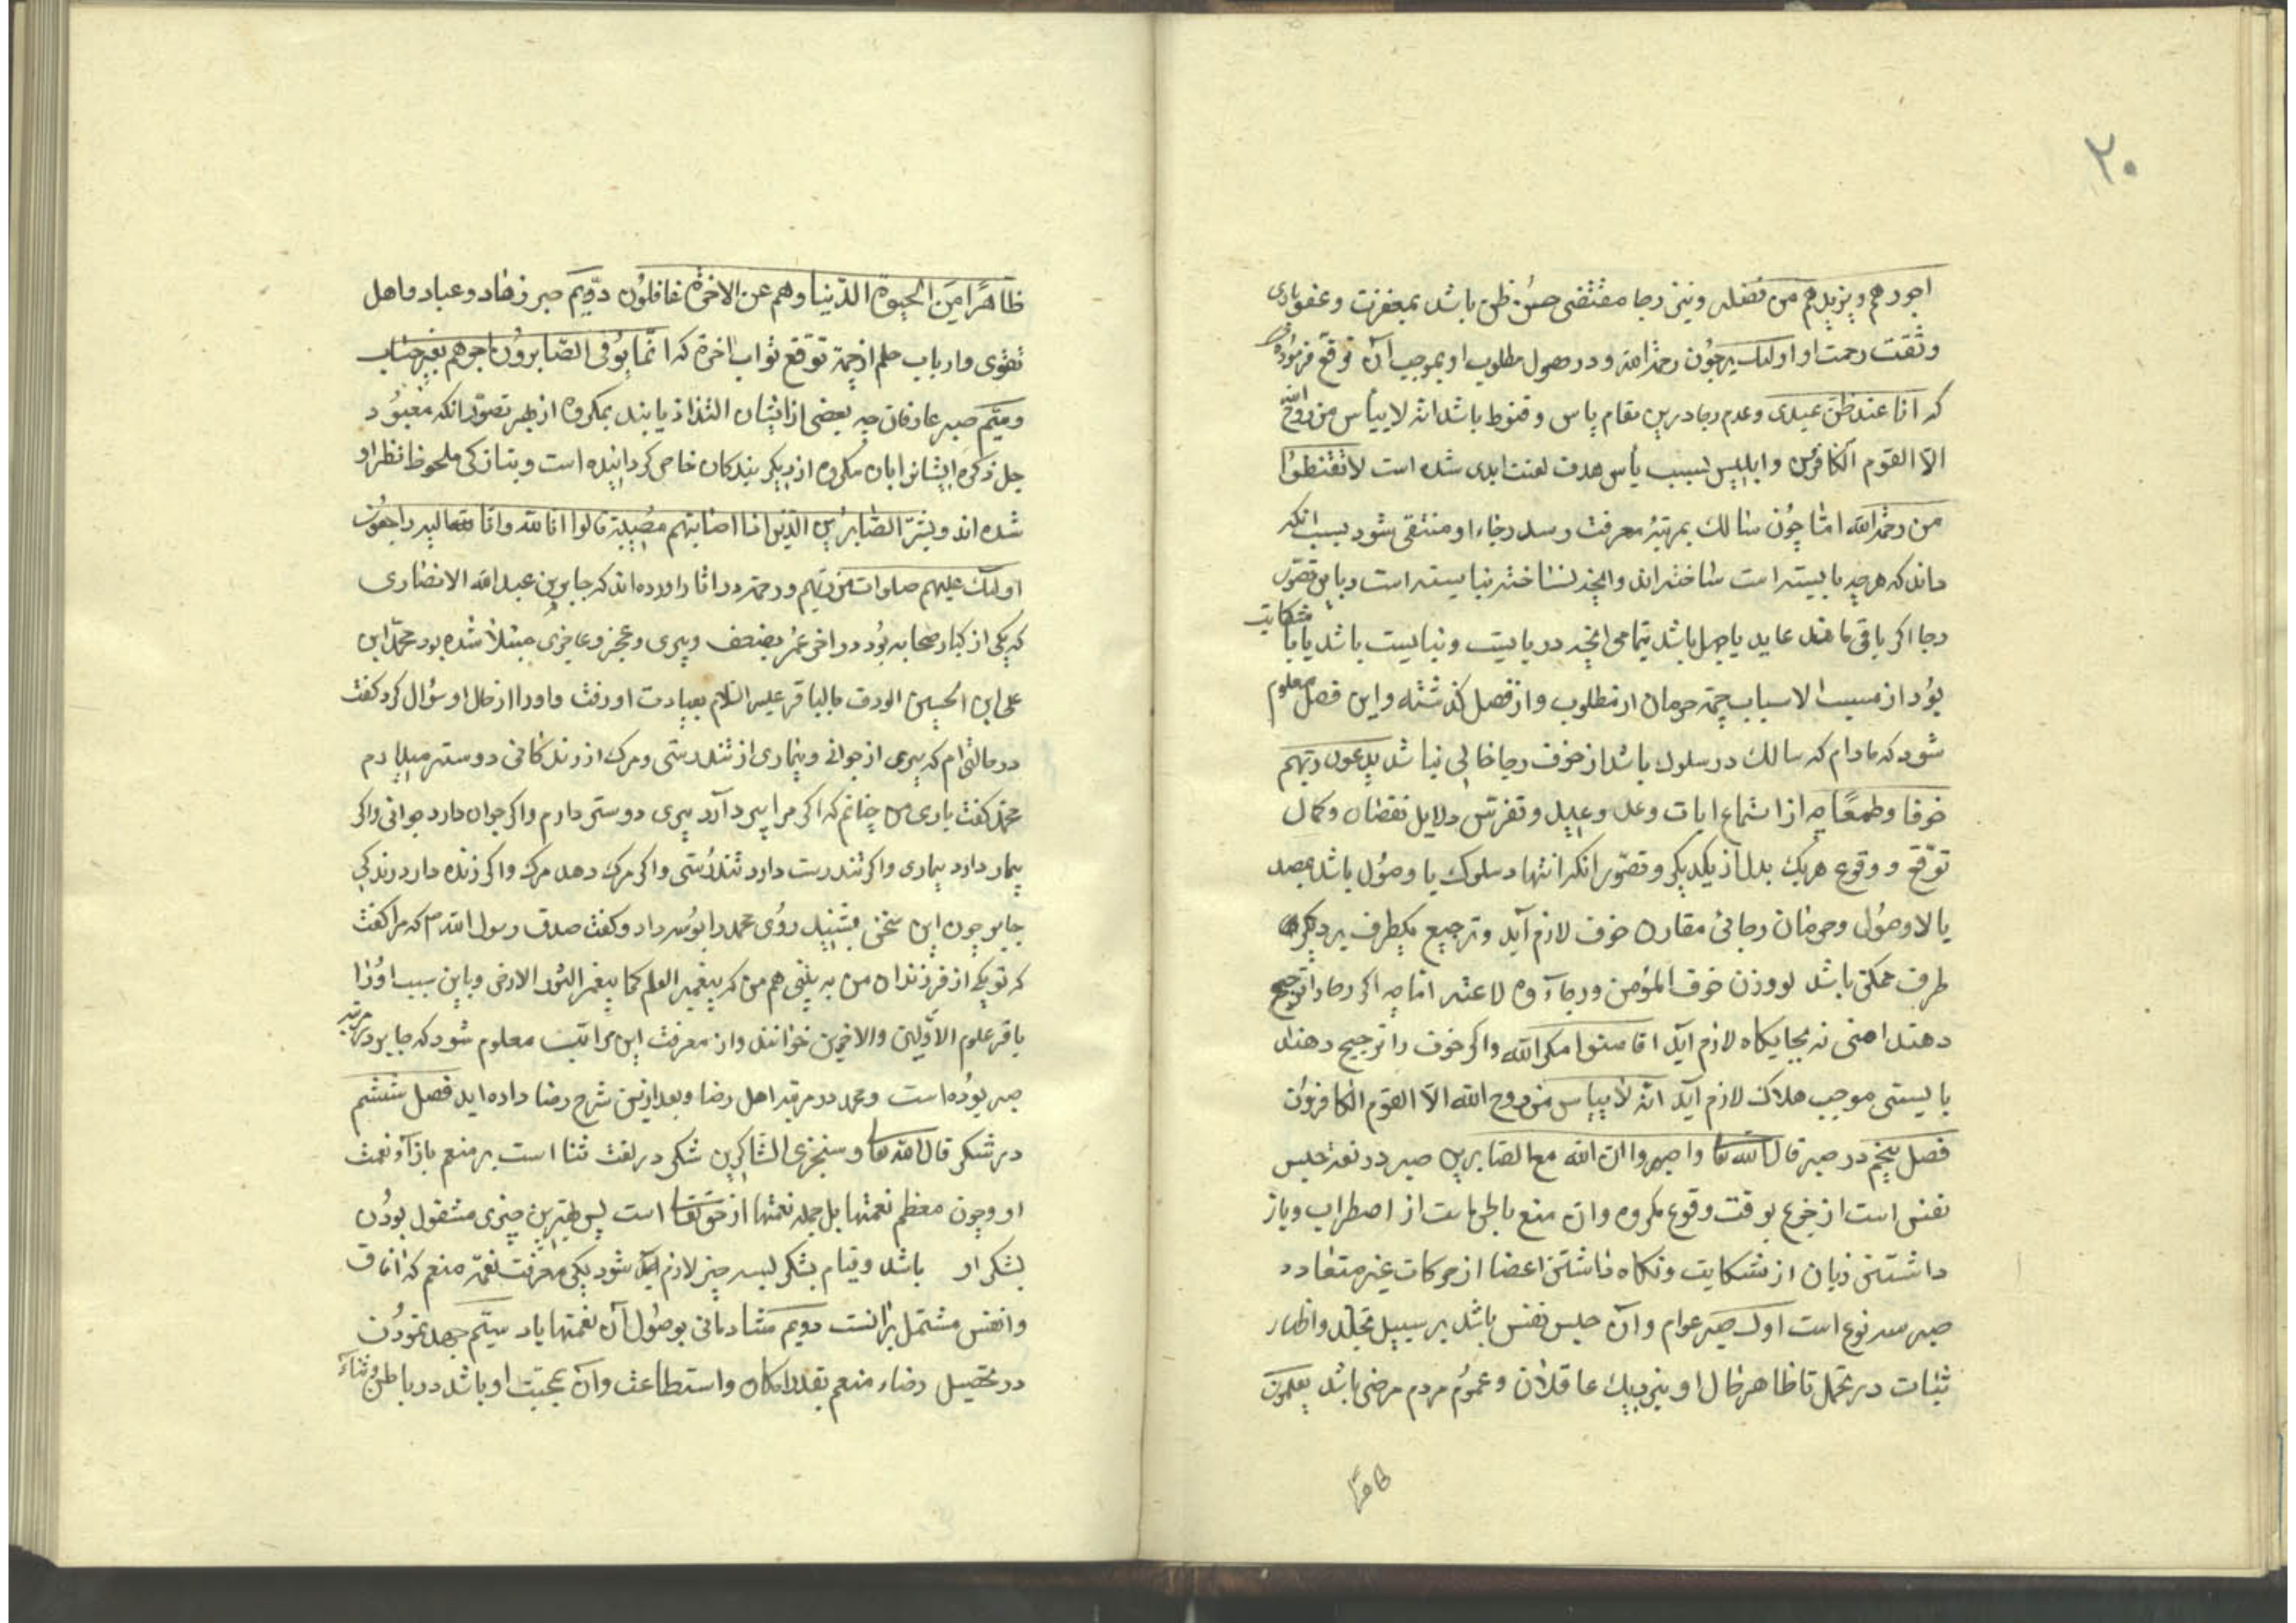 ٢٠
اجورهم ويزيدهم من فضله ونيز رجا مقتضى حسن ظن باشد بمغفرت وعفو بارى
وثقت برحمت او اولئك يرجون رحمة الله ودر حصول مطلوب او بموجب آن توقع فرموده
كه انا عند ظن عبدى وعدم رجا درين مقام ياس وقنوط باشد انه لا ييأس من روح الله
الا القوم الكافرون وابليس بسبب يأس هدف لعنت ابدى شده است لا تقنطوا
من رحمة الله اما چون سالك بمرتبهٔ معرفت رسد رجاء او منتفى شود بسبب آنكه
داند كه هرچه بايسته است ساخته اند وانچه نساخته نبايسته است وباين تصور
رجا اكر باقى ماند عايد با جهل باشد بتمامى انچه دربايست ونبايست باشد يا با شكايت
بود از مسبب الاسباب بجهة حرمان از مطلوب واز فصل كذشته واين فصل معلوم
شود كه مادام كه سالك در سلوك باشد از خوف ورجا خالى نباشد يدعون ربهم
خوفا وطمعا چه از استماع ايات وعد ووعيد وتفرس دلايل نقصان وكمال
توقع ووقوع هريك بدل از يكديكر وتصور انكه انتهاء سلوك با وصول باشد بقصد
يا لا وصول وحرمان رجائى مقارن خوف لازم آيد وترجيح يكطرف بر ديكر
طرف ممكن باشد لو وزن خوف المؤمن ورجاءه لاعتدلا چه اكر رجا را ترجيح
دهند امنى نه بجايكاه لازم آيد افامنوا مكر الله واكر خوف را ترجيح دهند
ياسى موجب هلاك لازم آيد انه لا ييأس من روح الله الا القوم الكافرون
فصل پنجم در صبر قال الله تعا واصبروا ان الله مع الصابرين صبر در لغة حبس
نفس است از جزع بوقت وقوع مكروه وان منع باطن است از اضطراب وباز
داشتن زبان از شكايت ونكاه داشتن اعضا از حركات غير معتاده
صبر سه نوع است اول صبر عوام وآن حبس نفس باشد بر سبيل تجلد واظهار
ثبات در تحمل تا ظاهر حال او نزديك عاقلان وعموم مردم مرضى باشد يعلمون
ظاهرا
ظاهرًا مِنَ الحيوة الدنيا وهم عن الاخرة غافلون دويم صبر زهاد وعباد واهل
تقوى وارباب حلم از جهة توقع ثواب اخرة كه انما يوفى الصابرون اجرهم بغير حساب
وسيم صبر عارفان چه بعضى از ايشان التذاذ يابند بمكروه از بهر تصور انكه معبود
جل ذكره ايشانرا بآن مكروه از ديكر بندكان خاص كردانيده است وبتازكى ملحوظ نظر او
شده اند وبشر الصابرين الذين اذا اصابتهم مصيبة قالوا انا لله وانا اليه راجعون
اولئك عليهم صلوات من ربهم ورحمة در اثار اورده اند كه جابر بن عبد الله الانصارى
كه يكى از كبار صحابه بود در اخر عمر بضعف وپيرى وعجز وعاجزى مبتلا شده بود محمد ابن
على ابن الحسين المعروف بالباقر عليه السلام بعيادت او رفت واورا از حال او سؤال كرد كفت
در حالتى ام كه پيرى از جوانى وبيمارى از تندرستى ومرك از زندكانى دوستر ميدارم
محمد كفت بارى من چنانم كه اكر مرا پير دارد پيرى دوستر دارم واكر جوان دارد جوانى واكر
بيمار دارد بيمارى واكر تندرست دارد تندرستى واكر مرك دهد مرك واكر زنده دارد زندكى
جابر چون اين سخن بشنيد روى محمد را بوسه داد وكفت صدق رسول الله كه مرا كفت
كه تو يكى از فرزندان من به بينى هم نام من كه يبقر العلم كما يبقر الثور الارض وباين سبب اورا
باقر علوم الاولين والاخرين خوانند واز معرفت اين مراتب معلوم شود كه جابر در مرتبهٔ
صبر بوده است ومحمد در مرتبه اهل رضا وبعد ازين شرح رضا داده ايد فصل ششم
در شكر قال الله تعا وسنجزى الشاكرين شكر در لغت ثنا است بر منعم بازآء نعمت
او وچون معظم نعمتها بل جمله نعمتها از حق تعا است پس بهترين چيزى مشغول بودن
بشكر او باشد وقيام بشكر بسه چيز لازم شود يكى معرفت نعمة منعم كه افاق
وانفس مشتمل برانست دويم شادمانى بوصول آن نعمتها باد سيم جهد نمودن
در تحصيل رضاء منعم بقدر امكان واستطاعت وآن بمحبت او باشد در باطن وثناء